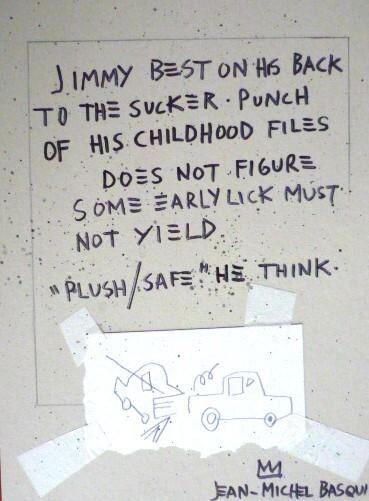 JIMMY BEST ON HIS BACK
TO THE SUCKER·PUNCH
OF HIS CHILDHOOD FILES
DOES NOT FIGURE
SOME EARLY LICK MUST
NOT YIELD
"PLUSH/SAFE" HE THINK.
JEAN-MICHEL BASQUI